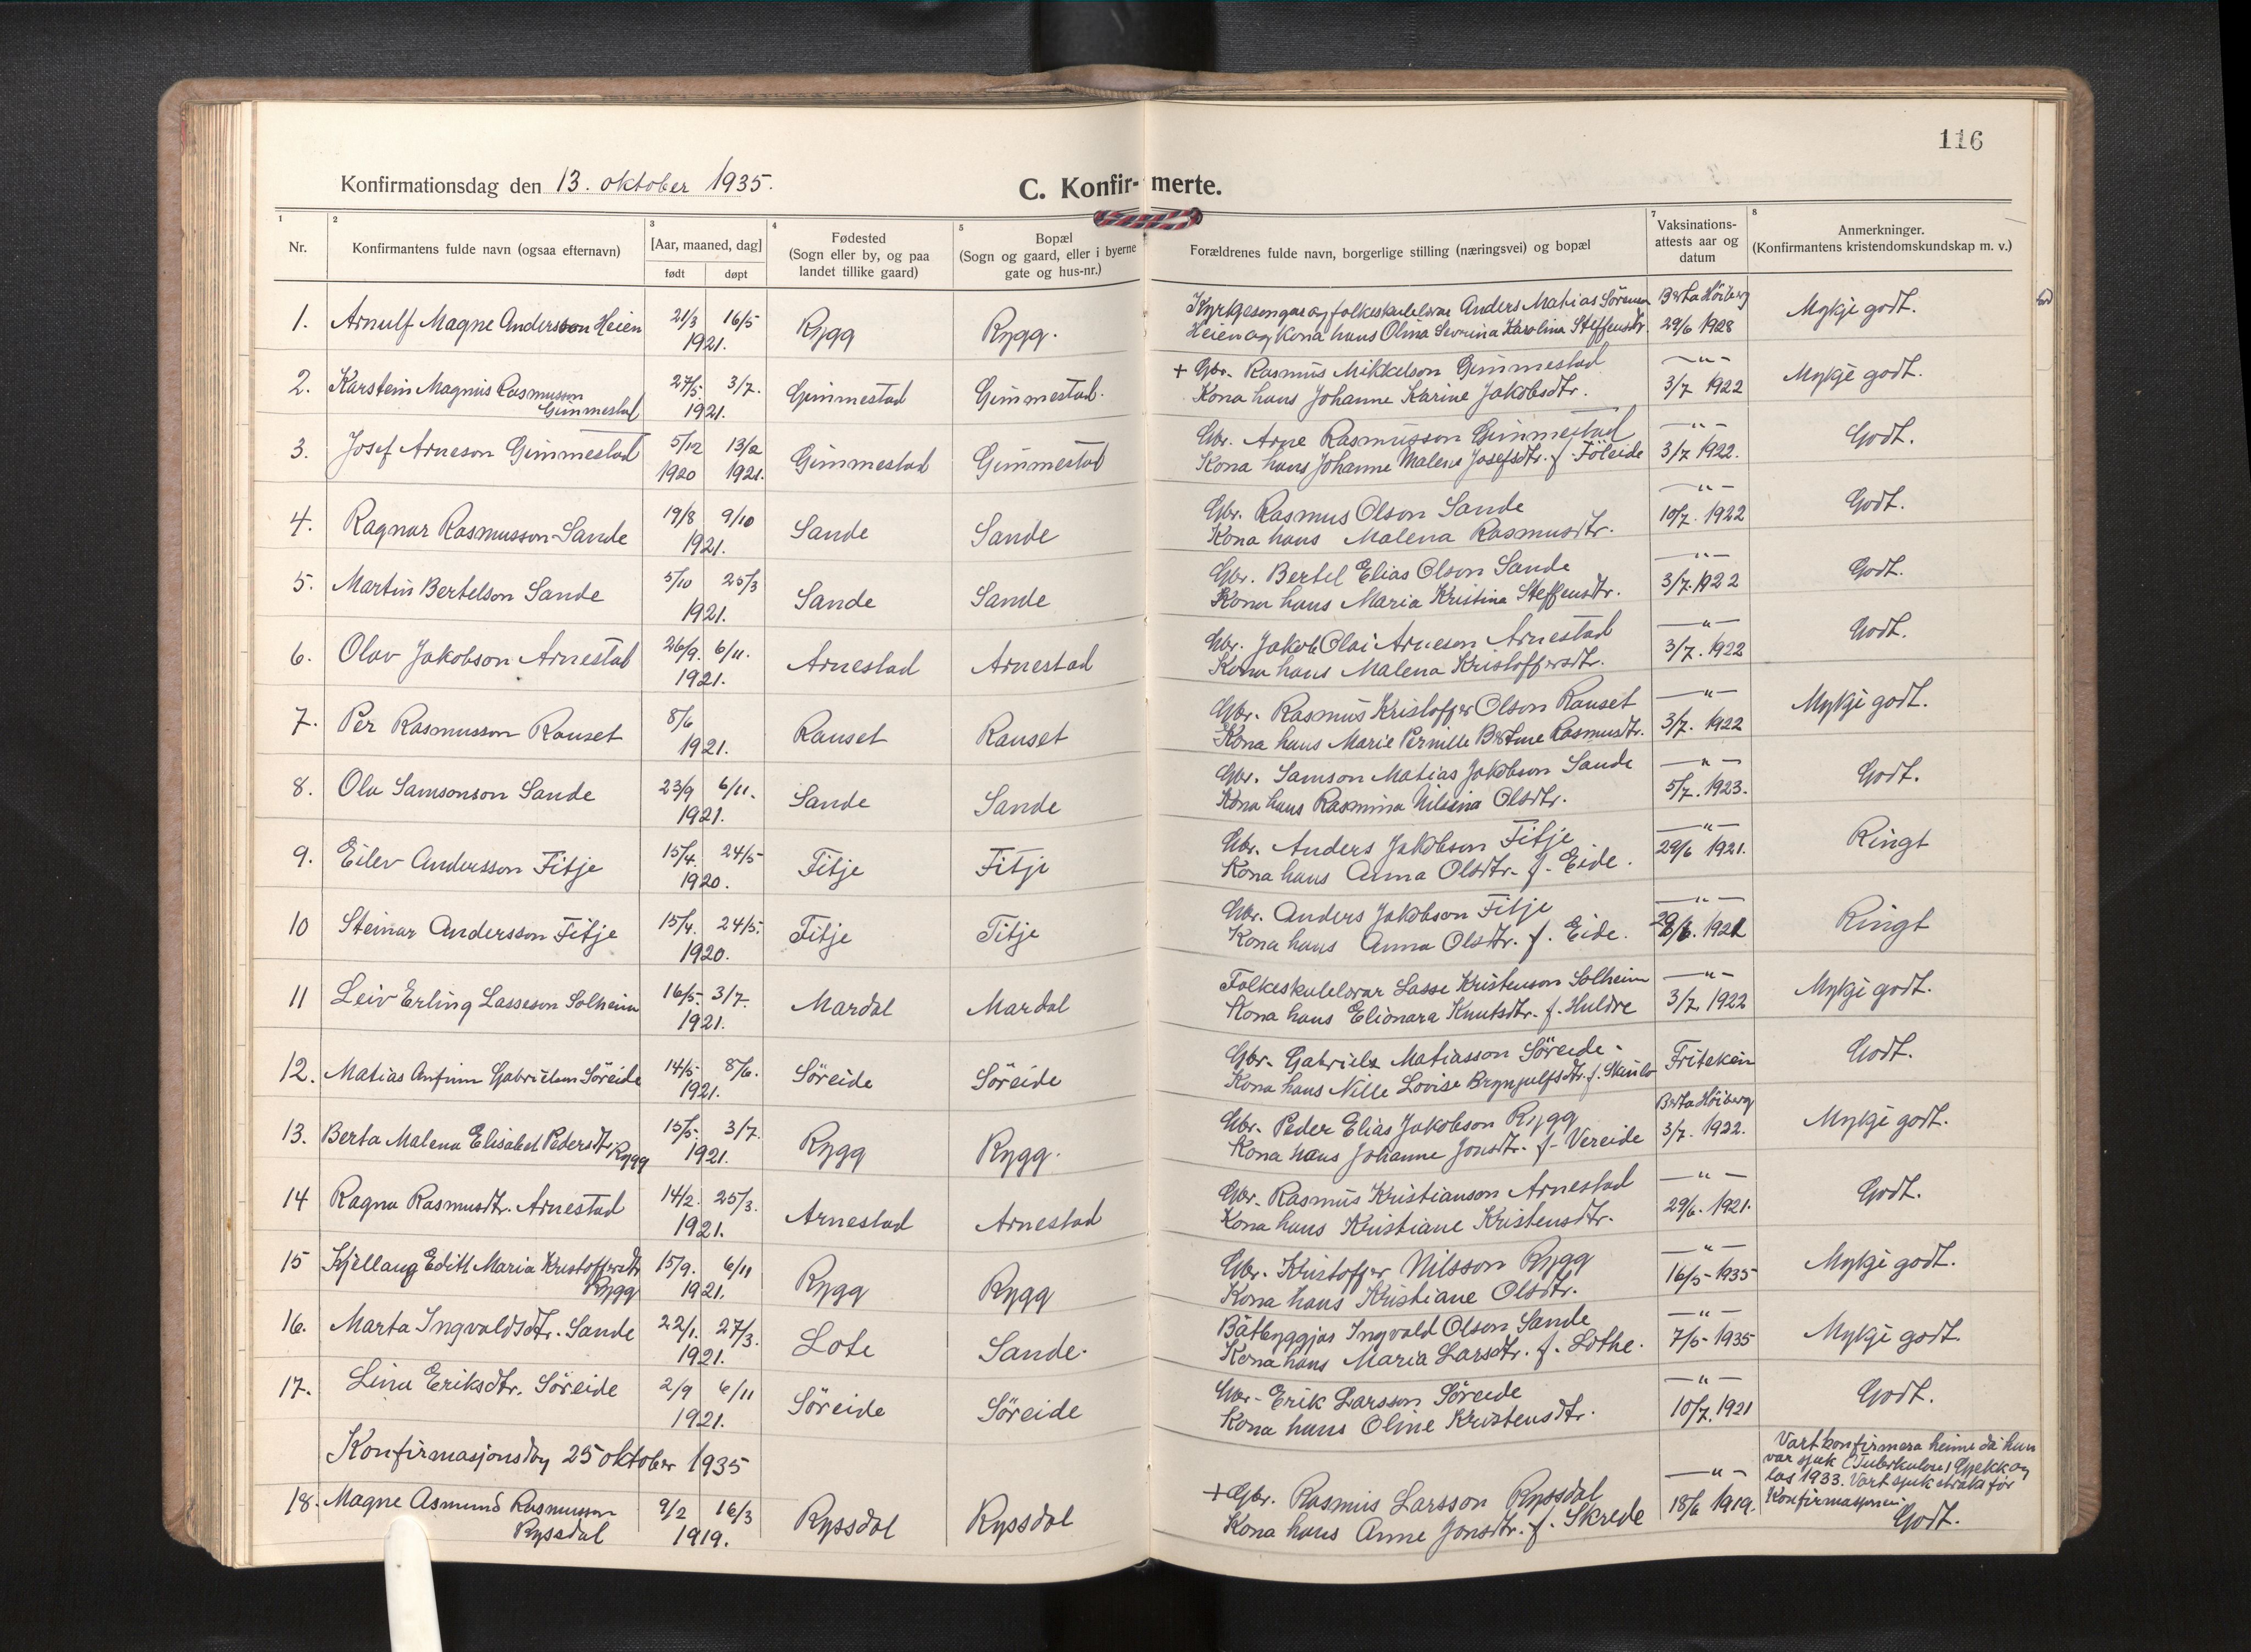 116
Konfirmationsdag den 13. oktober 1935.
C. Konfir- merte.
1 2 3 4 5 7 8
Nr.
Konfirmantens fulde navn (ogsaa efternavn)
[Aar, maaned, dag]
født døpt
Fødested
(Sogn eller by, og paa
landet tillike gaard)
Bopæl
(Sogn og gaard, eller i byerne
gate og hus-nr.)
Forældrenes fulde navn, borgerlige stilling (næringsvei) og bopæl
Vaksinations-
attests aar og
datum
Anmerkninger.
(Konfirmantens kristendomskundskap m. v.)
1. Arnulf Magne Andersson Heien 21/3 16/5 Rygg Rygg. Kyrkjesongar og folkeskulelærar Anders Matias Sörensen Berta Höiberg Mykje godt.
1921. Heien og kona hans Olina Severina Karolina Steffensdtr. 29/6 1928
2. Karstein Magnus Rasmusson 27/5. 3/7. Gimmestad Gimmestad. + Gbr. Rasmus Mikkelson Gimmestad —"— Mykje godt.
Gimmestad 1921. Kona hans Johanne Karine Jakobsdtr. 3/7 1922
3. Josef Arneson Gimmestad 5/12 13/2 Gimmestad Gimmestad Gbr. Arne Rasmusson Gimmestad —"— Godt.
1920 1921. Kona hans Johanne Malene Josefsdtr. f. Föleide 3/7 1922.
4. Ragnar Rasmusson Sande 19/8 9/10 Sande Sande Gbr. Rasmus Olson Sande —"— Godt.
1921. Kona hans Malena Rasmusdtr. 10/7. 1922
5. Martin Bertelson Sande 5/10 25/3 Sande Sande Gbr. Bertel Elias Olson Sande —"— Godt.
1921. Kona hans Maria Kristina Steffensdtr. 3/7. 1922
6. Olav Jakobson Arnestad 26/9. 6/11. Arnestad Arnestad Gbr. Jakob Olai Arneson Arnestad —"— Godt.
1921. Kona hans Malena Kristoffersdtr. 3/7. 1922
7. Per Rasmusson Rauset 8/6 Rauset Rauset Gbr. Rasmus Kristoffer Olson Rauset —"— Mykje godt.
1921. Kona hans Marie Pernille Bertine Rasmusdtr. 3/7. 1922
8. Ola Samsonson Sande 23/9 6/11. Sande Sande Gbr. Samson Matias Jakobson Sande —"— Godt.
1921. Kona hans Rasmina Nilsina Olsdtr. 5/7. 1923.
9. Eilev Andersson Fitje 15/4. 24/5 Fitje Fitje Gbr. Anders Jakobson Fitje —"— Ringt
1920. Kona hans Anna Olsdtr. f. Eide. 29/6 1921.
10 Steinar Andersson Fitje 15/4. 24/5. Fitje Fitje Gbr. Anders Jakobson Fitje —"— Ringt
1920. Kona hans Anna Olsdtr. f. Eide. 29/6. 1921
11 Leiv Erling Lasseson Solheim 16/5. 3/7. Mardal Mardal Folkeskulelærar Lasse Kristenson Solheim —"— Mykje godt.
1921. Kona hans Elionara Knutsdtr. f. Huldre 3/7. 1922
12. Matias Anfinn Gabrielson Söreide 14/5 8/6. Söreide Söreide Gbr. Gabriel Matiasson Söreide. Friteken Godt.
1921. Kona hans Nille Lovise Brynjulfsdtr. f. Skaulo
13. Berta Malena Elisabet Pedersdtr. Rygg 15/5. 3/7. Rygg Rygg. Gbr. Peder Elias Jakobson Rygg Berta Höiberg Mykje godt.
1921. Kona hans Johanne Jonsdtr. f. Vereide 3/7. 1922.
14 Ragna Rasmusdtr. Arnestad 14/2. 25/3. Arnestad Arnestad Gbr. Rasmus Kristianson Arnestad —"— Godt.
1921. Kona hans Kristiane Kristensdtr. 29/6. 1921.
15 Kjellaug Editt Maria Kristoffersdtr 15/9. 6/11 Rygg Rygg Gbr. Kristoffer Nilsson Rygg —"— Mykje godt.
Rygg 1921. Kona hans Kristiane Olsdtr. 16/5 1935
16. Marta Ingvaldsdtr. Sande 22/1. 27/3. Lote Sande. Båtbyggjar Ingvald Olson Sande —"— Mykje godt.
1921. Kona hans Maria Larsdtr. f. Lothe. 7/5 1935
17. Lina Eriksdtr. Söreide 2/9 6/11 Söreide Söreide Gbr. Erik Larsson Söreide —"— Godt.
1921. Kona hans Oline Kristensdtr. 10/7. 1921
Konfirmasjonsdag 25 oktober 1935
Vart konfirmera heime då han
var sjuk (Tuberkulose) Gjekk og
las 1933. Vart sjuk straks för
Konfirmasjonen.
18. Magne Asmund Rasmusson 9/2 16/3 Ryssdal Ryssdal + Gbr. Rasmus Larsson Ryssdal —"— Godt.
Ryssdal 1919. Kona hans Anne Jonsdtr. f. Skrede 18/6 1919.